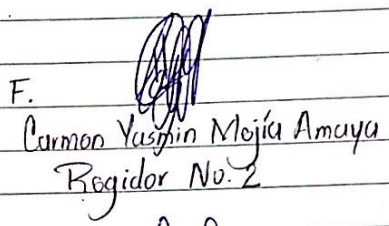 F.
Carmen Yasmin Mejía Amaya
Regidor No. 2